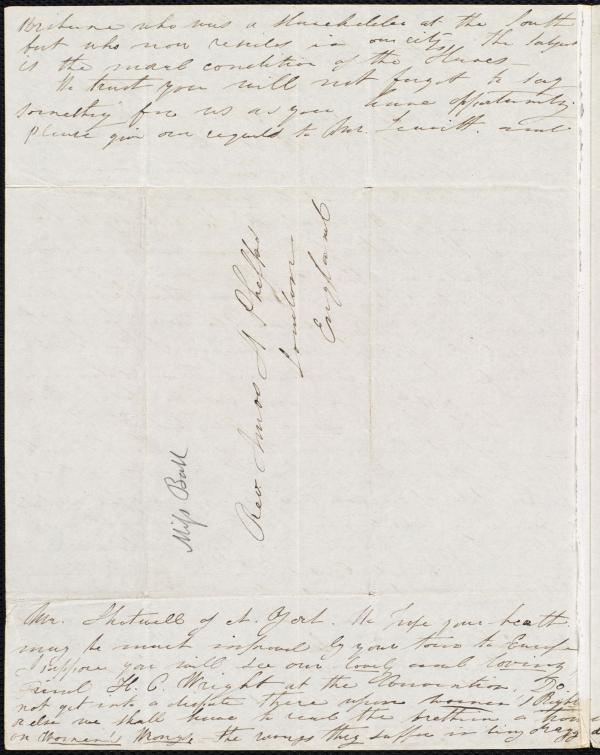 who was a slaveholder at the South
but who now resides in our city. The subject
is the moral condition of the Slaves
We trust you will not forget to say
something for us as you have opportunity.
Please give our regards to Mr. Leavitt. and
Rev Amos A Phelps
London
England
Miss Ball
Mr. Shotwell of N. York. We hope your health
may be much improved by your tour to Europe
I suppose you will see our lovely and loving
friend H. C. Wright at the Convention, Do
not get into a dispute there upon women's Rights
or else we shall have to read the brethren a
on Women's Wrongs, the wrongs they suffer in being